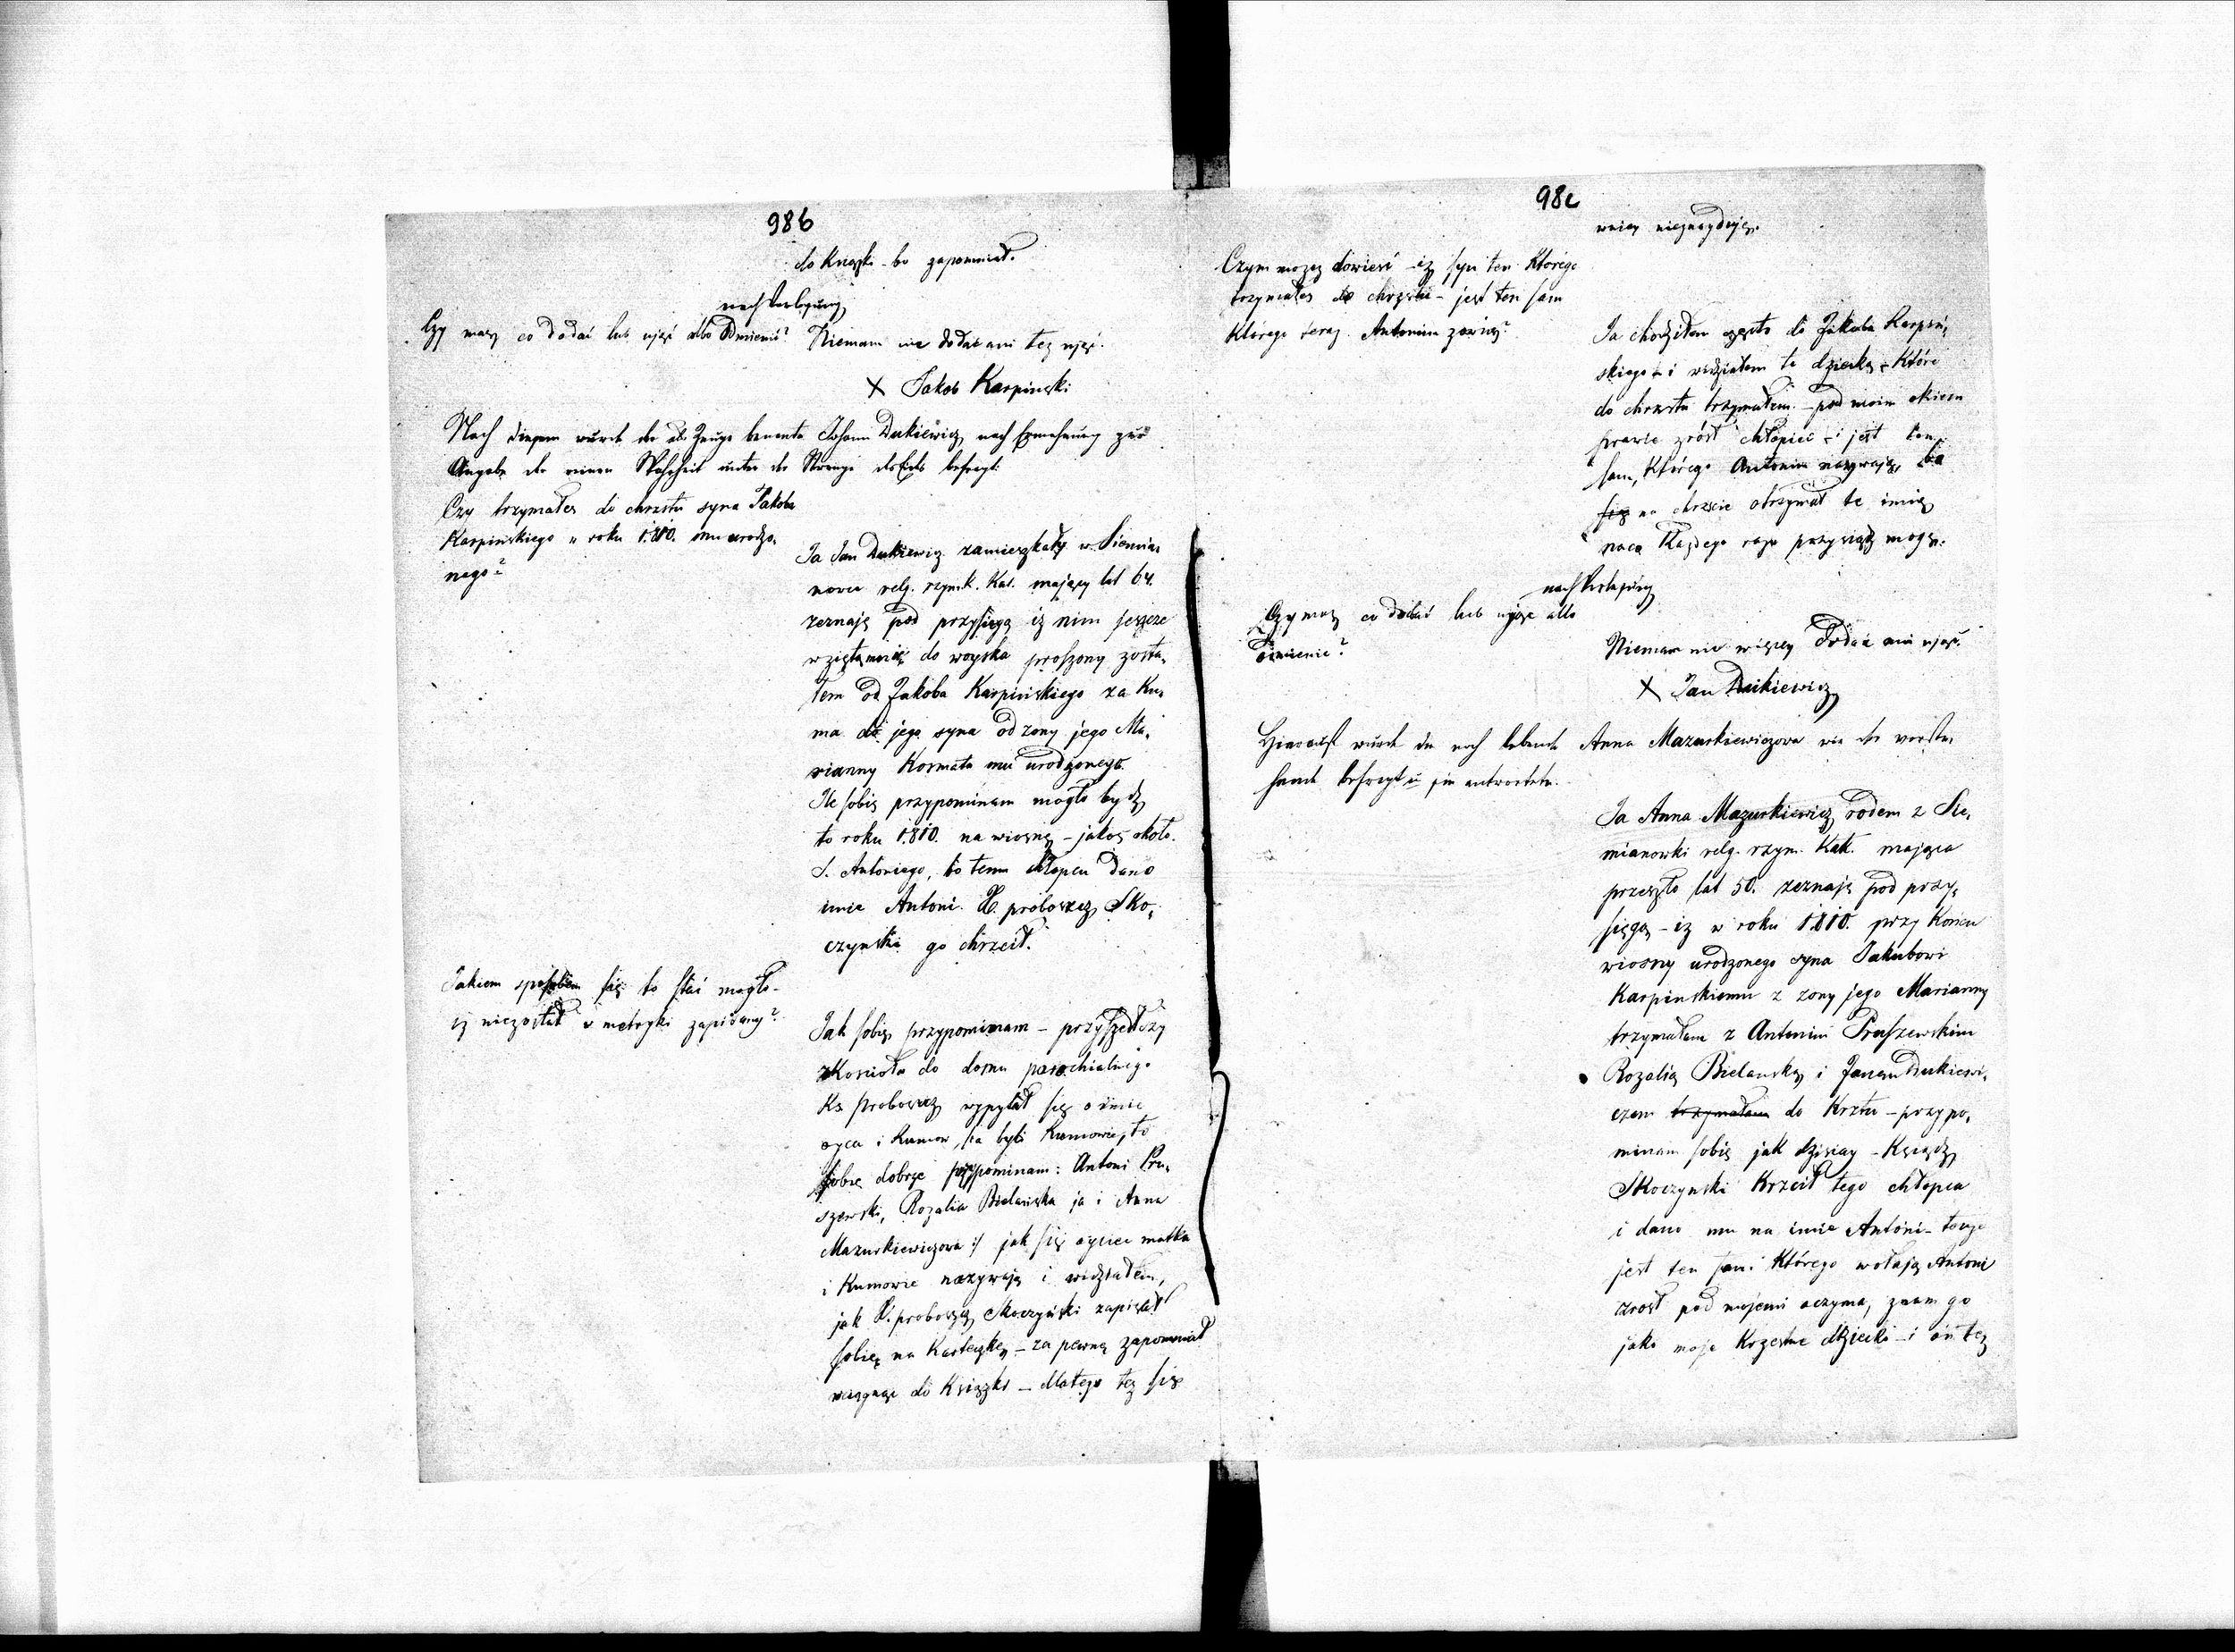 98b
do Książki bo zapomniał.
nach Vorlesung
Czy masz co dodać lub ująć albo odmienić? Niemam nic dodać ani też ująć.
X Jakob Karpinski
Nach diesem wurde der als Zeuge benannte Johann Dutkiewicz nach Ermahnung zur
Angabe der reinen Wahrheit unter der Strenge des Eids befragt:
Czy trzymałes do chrztu syna Jakoba
Karpińskiego w roku 1810. mu urodzo,
nego?
Ja Jan Dutkiewicz zamieszkały w Siemia,
nowce relg. rzym. k. Kat. mający lat 64.
zeznaję pod przysięgą iz nim jeszcze
wzięto mnie do woyska proszony zosta,
łem od Jakoba Karpińskiego za Ku,
ma do jego syna od zony jego Ma,
rianny Kosmata mu urodzonego.
Ile sobię przypominam mogło bydz
to roku 1810. na wiosnę – jakoś około
S. Antoniego, bo temu chłopcu dano
imie Antoni. X. proboszcz Sko,
czyński go chrzcił.
Jakiem sposobem się to stać mogło –
iz niezostał w metryki zapisany?
Jak sobię przypominam – przyszedłszy
z Koscioła do domu parochialnego
Ks proboszcz wypytał się o imie
oyca i Kumow, /: a byli Kumowie, to
sobie dobrze przypominam: Antoni Pru,
szewski, Rozalia Bielańska ja i Anna
Mazurkiewiczowa :/ jak się oyciec matka
i Kumowie nazywają i widziałem,
jak X. proboszcz Skoczyński zapisał
sobię na Karteczkę – za pewną zapomniał
wciągnąc do Książki – dlatego też się
98c
w niey nieznayduje.
Czym mozesz dowieść iz syn ten Którego
trzymałes do chrztu – jest ten sam
Którego teraz Antonim zowią?
Ja chodziłem często do Jakuba Karpiń,
skiego – i widziałem to dziecko – Które
do chrztu trzymałem – pod moim okiem
prawie zrósł chłopiec – i jest ten
sam, Którego Antonim nazywają, bo
się na chrzcie otrzymał te imię
na co Każdego razu przysiądz mogę.
nach Vorlesung
Czy masz co dodać lub ując albo
odmienic?
Niemam nic więcey dodać ani ująć.
X Jan Dutkiewicz
Hierauf wurde die noch lebende Anna Mazurkiewiczowa wie der vorste,
hende befragt u sie antwortete.
Ja Anna Mazurkiewicz rodem z Sie,
mianowki relg. rzym. Kat. mająca
przeszło lat 50. zeznaję pod przy,
sięgą – iz w roku 1810. przy Koncu
wiosny urodzonego syna Jakubowi
Karpinskiemu z zony jego Marianny
trzymałam z Antonim Pruszewskim
Rozalią Bielanską i Janem Dutkiewi,
czem trzymałam do Krztu – przypo,
minam sobię jak dzisiay – Książdz
Skoczynski Krzcił tego chłopca
i dano mu na imie Antoni – tenze
jest ten sam Którego wołają Antoni
zrosł pod mojemi oczyma, znam go
jako moje Krzestne dziecko – i on też